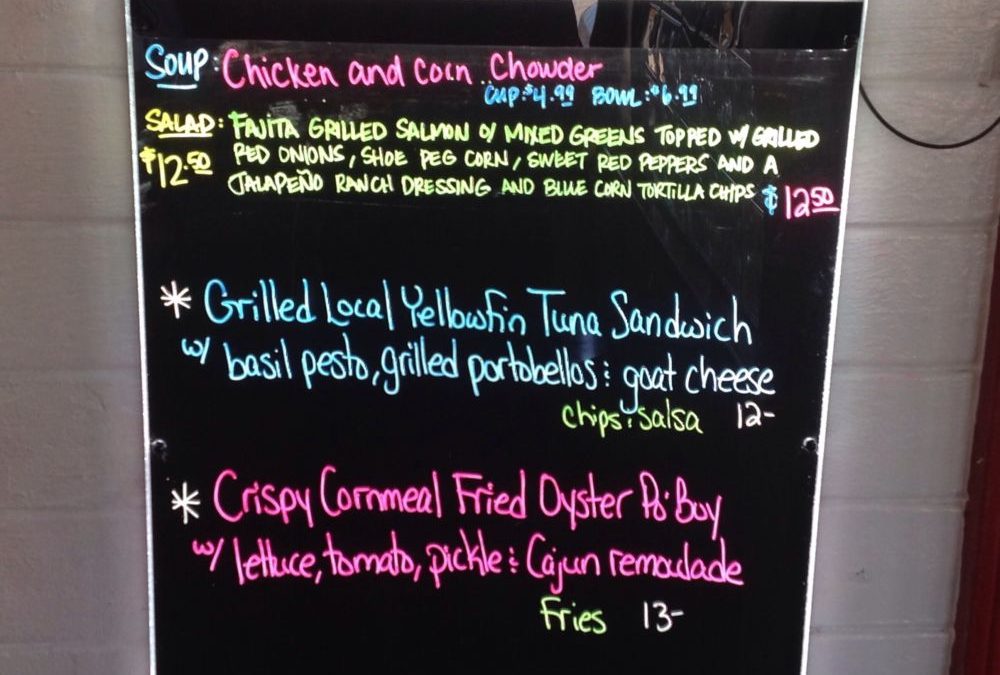 Soup: Chicken and Corn Chowder
Cup: $4.99 Bowl: $6.99
SALAD: FAJITA GRILLED SALMON O/ MIXED GREENS TOPPED W/ GRILLED
$12.50 RED ONIONS, SHOE PEG CORN, SWEET RED PEPPERS AND A
JALAPEÑO RANCH DRESSING AND BLUE CORN TORTILLA CHIPS $12.50
* Grilled Local Yellowfin Tuna Sandwich
w/ basil pesto, grilled portobellos : goat cheese
chips : salsa 12-
* Crispy Cornmeal Fried Oyster Po·Boy
w/ lettuce, tomato, pickle : Cajun remoulade
Fries 13-